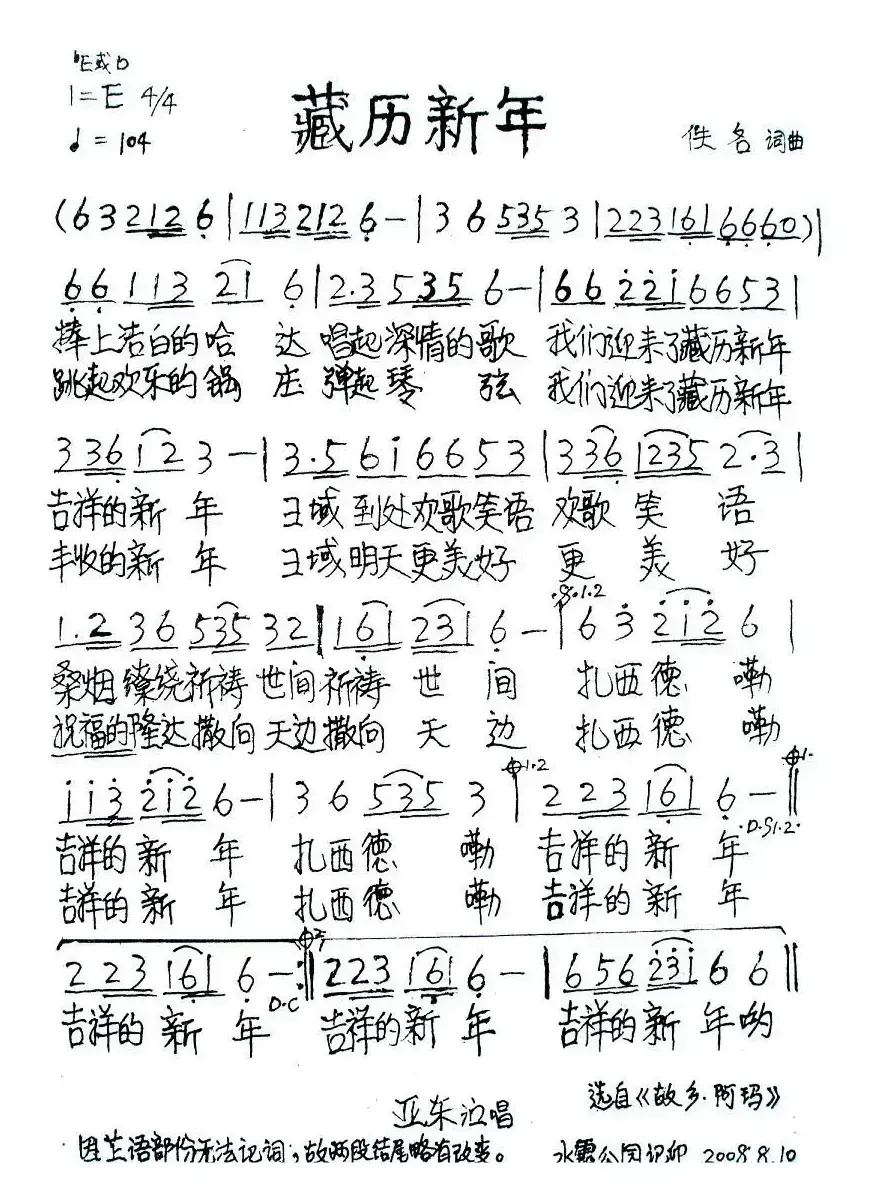 ♭E或D
1=E 4/4
♩=104
藏历新年
佚名 词曲
(6 3 212 6|113 212 6-|3 6 535 3|223 161 6660)|
66 113 21 6|2.35 35 6-|66 221 66 53|
捧上洁白的哈 达 唱起深情的歌 我们迎来了藏历新年
跳起欢乐的锅 庄 弹起琴 弦 我们迎来了藏历新年
336 12 3-|3.5 61 66 53|336 1235 2.3|
吉祥的新 年 王域到处欢歌笑语 欢歌 笑 语
丰收的新 年 王域明天更美好 更 美 好
.S.1.2
1.2 36 535 32|161 231 6-|6 3 212 6|
桑烟缭绕祈祷世间祈祷 世 间 扎西德 嘞
祝福的隆达撒向天边撒向 天 边 扎西德 嘞
113 212 6-|3 6 535 3|223 161 6-||
1.2 1.
D.S1.2.
吉祥的 新 年 扎西德 嘞 吉祥的 新 年
吉祥的 新 年 扎西德 嘞 吉祥的 新 年
2.
223 161 6-:||223 161 6-|656 231 6 6||
D.C
吉祥的 新 年 吉祥的 新 年 吉祥的 新 年呦
亚东演唱 选自《故乡·阿玛》
因藏语部份无法记词,故两段结尾略有改变。 2008.8.10